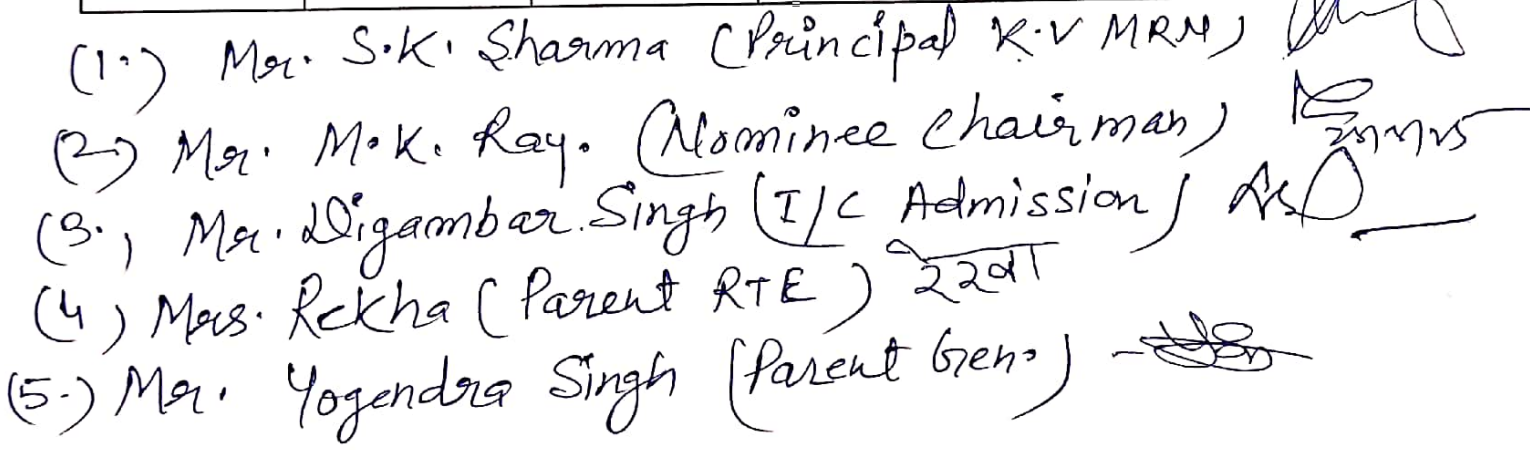 (1.) Mr. S.K. Sharma (Principal K.V MRN)
(2) Mr. M.K. Ray. (Nominee Chairman)
(3.) Mr. Digambar Singh (I/C Admission)
(4) Mrs. Rekha (Parent RTE) रेखा
(5.) Mr. Yogendra Singh (Parent Gen.)